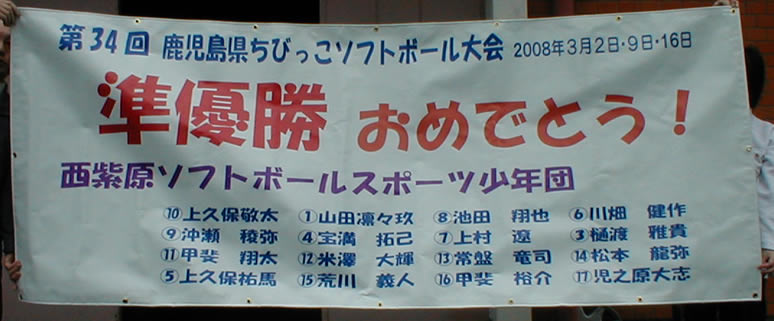 第34回 鹿児島県ちびっこソフトボール大会 2008年3月2日・9日・16日
準優勝 おめでとう！
西紫原ソフトボールスポーツ少年団
⑩上久保敬太 ①山田凛々玖 ⑧池田 翔也 ⑥川畑 健作
⑨沖瀬 稜弥 ④宝満 拓己 ⑦上村 遼 ③樋渡 雅貴
⑪甲斐 翔太 ⑫米澤 大輝 ⑬常盤 竜司 ⑭松本 龍弥
⑤上久保祐馬 ⑮荒川 義人 ⑯甲斐 裕介 ⑰児之原大志